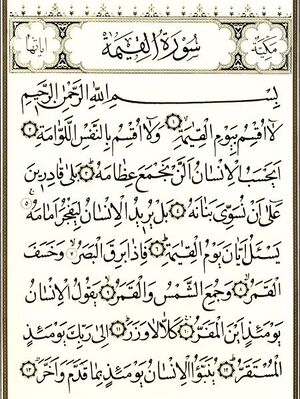 مكية
سورة القيمة
اياتها
بسم الله الرحمن الرحيم
لا اقسم بيوم القيمة ١ ولا اقسم بالنفس اللوامة ٢
ايحسب الانسان الن نجمع عظامه ٣ بلى قادرين
على ان نسوى بنانه ٤ بل يريد الانسان ليفجر امامه ٥
يسئل ايان يوم القيمة ٦ فاذا برق البصر ٧ وخسف
القمر ٨ وجمع الشمس والقمر ٩ يقول الانسان
يومئذ اين المفر ١٠ كلا لا وزر ١١ الى ربك يومئذ
المستقر ١٢ ينبؤا الانسان يومئذ بما قدم واخر ١٣